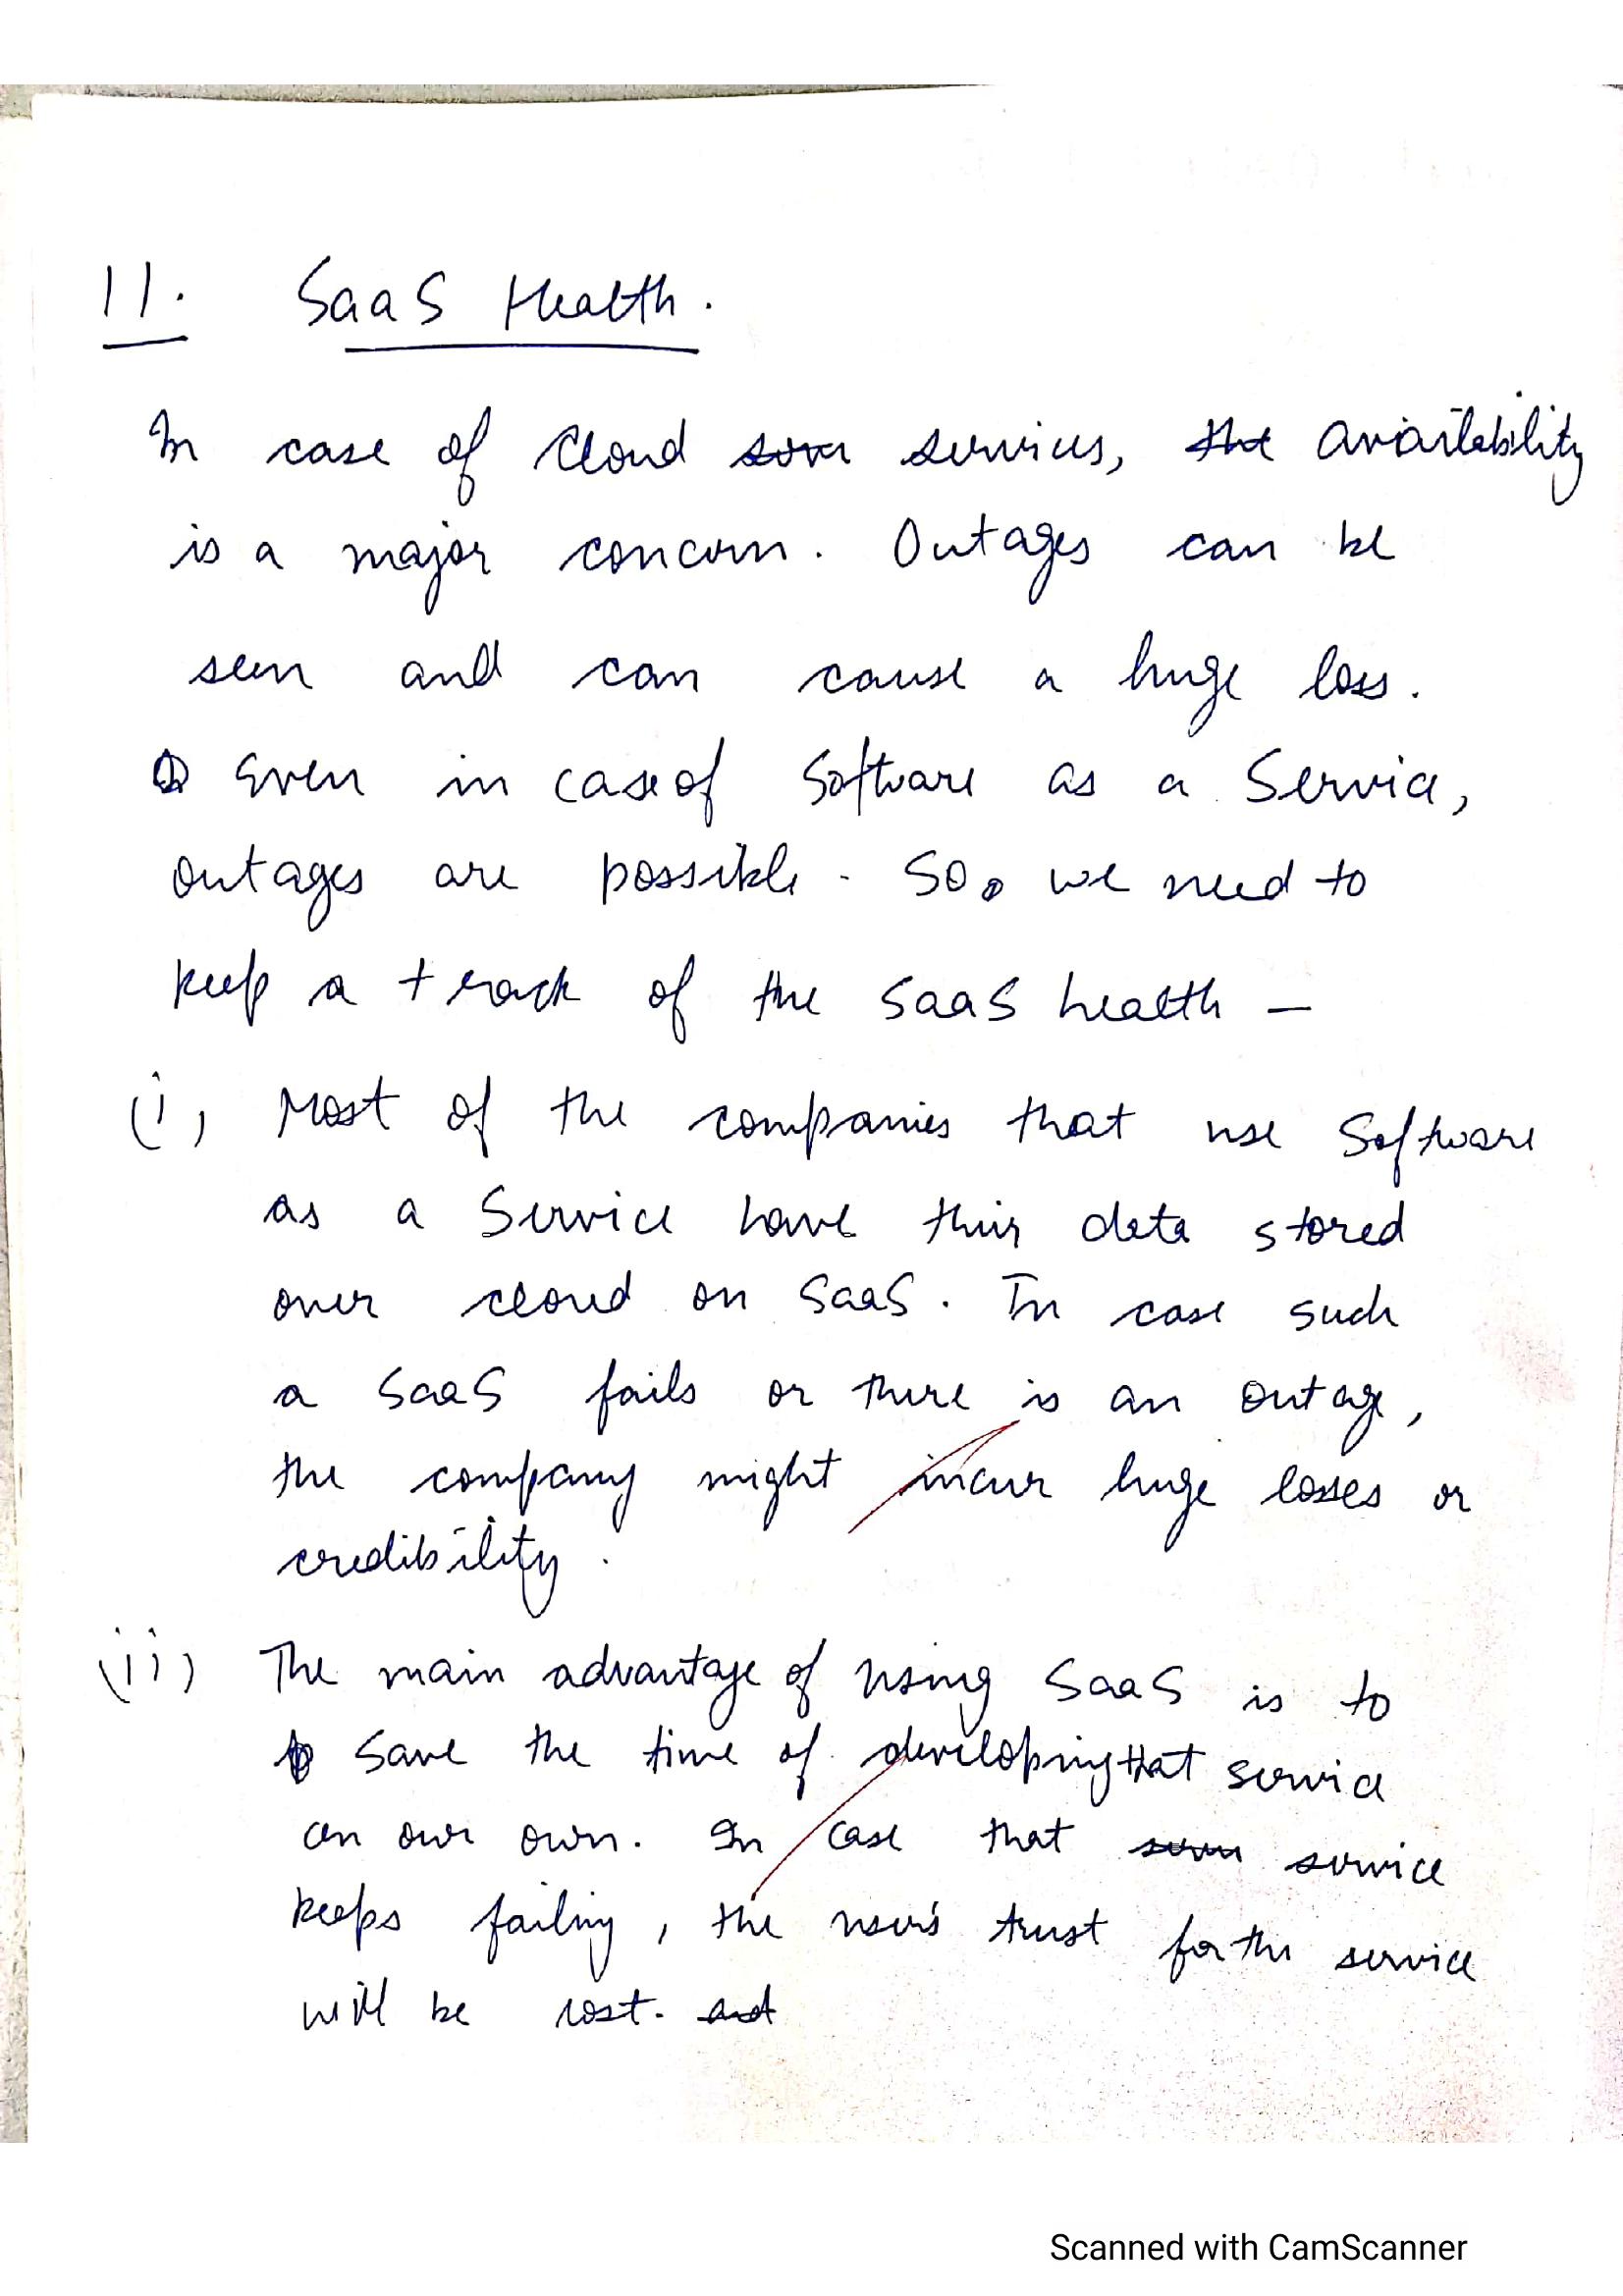 11. SaaS Health.
In case of Cloud services, availability
is a major concern. Outages can be
seen and can cause a huge loss.
Even in case of Software as a Service,
outages are possible. So, we need to
keep a track of the SaaS health —
(i) Most of the companies that use Software
as a Service have their data stored
over cloud on SaaS. In case such
a SaaS fails or there is an outage,
the company might incur huge losses or
credibility.
(ii) The main advantage of using SaaS is to
save the time of developing that service
on our own. In case that service
keeps failing, the user's trust for the service
will be lost.
Scanned with CamScanner